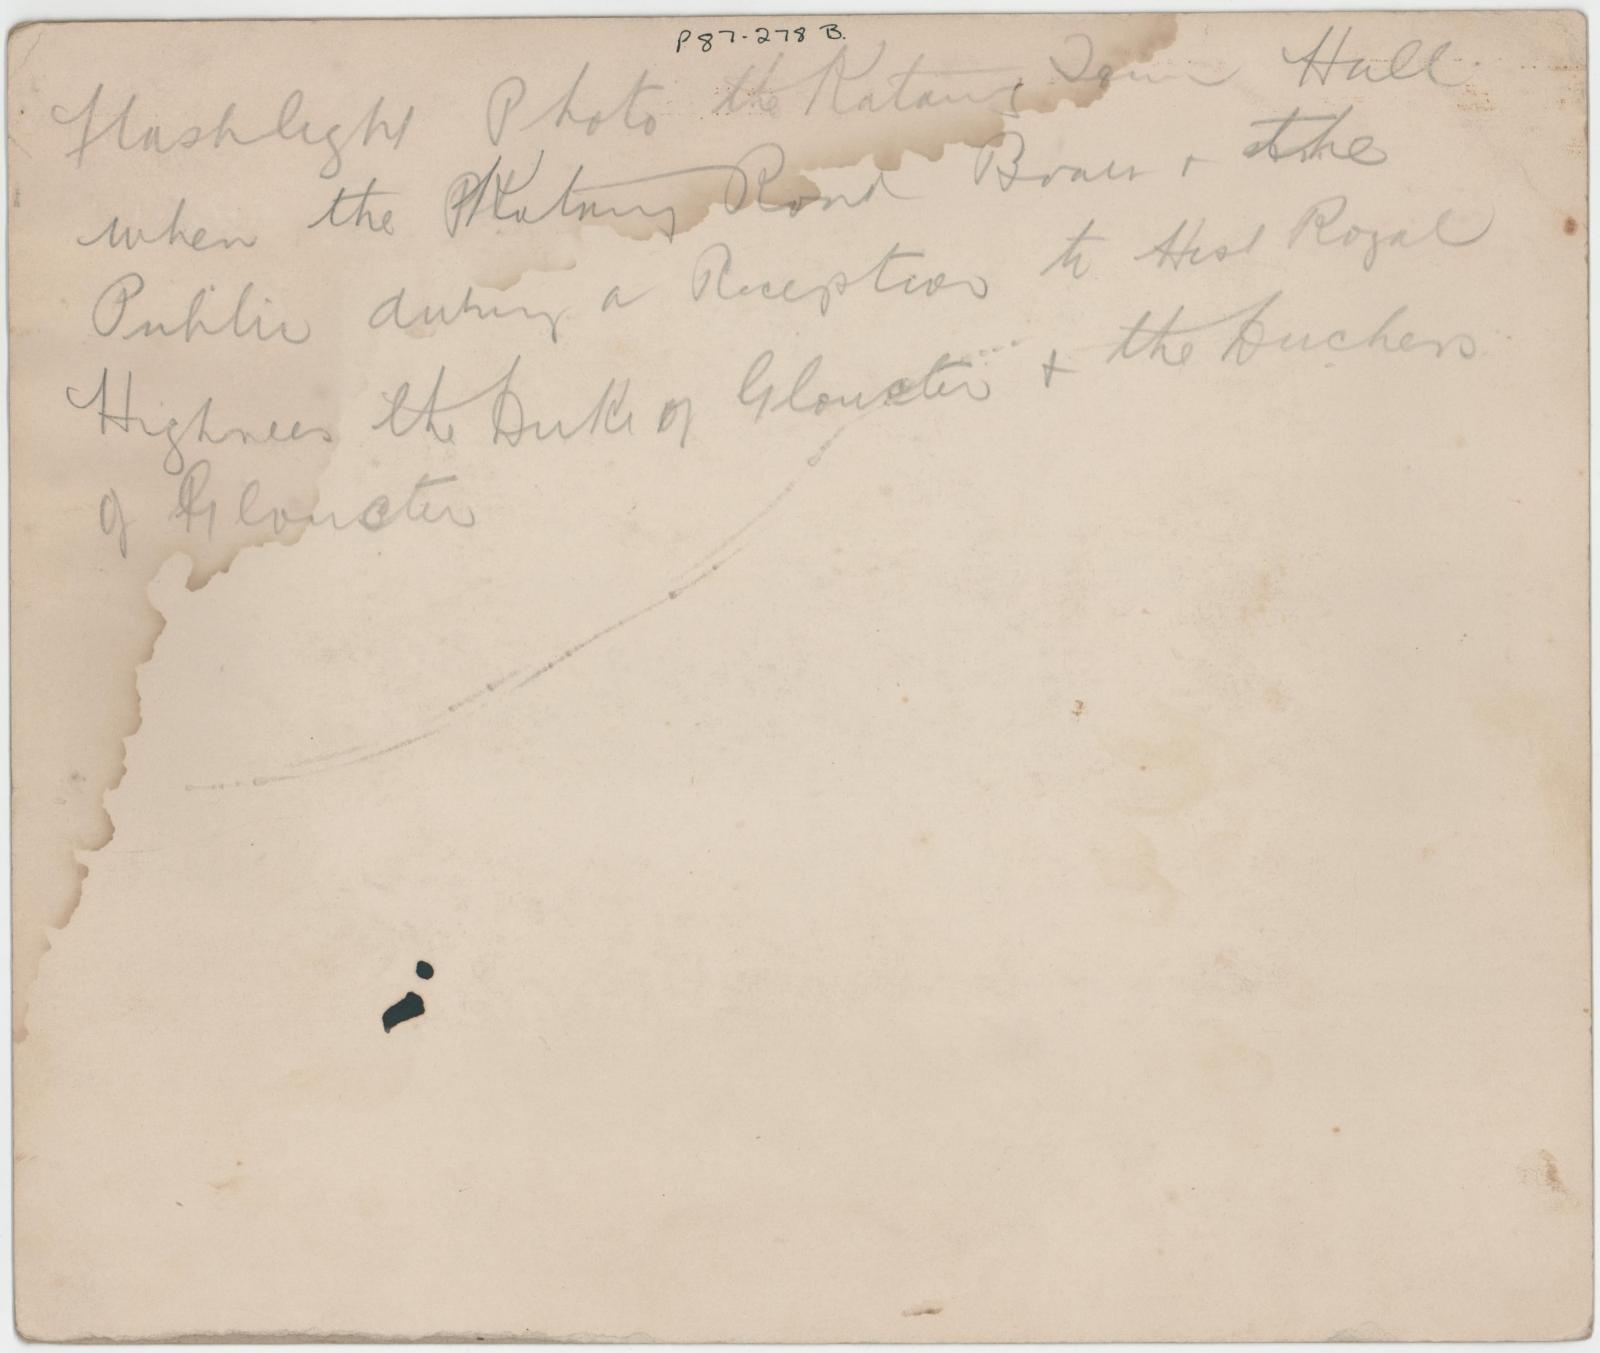 P87-278 B.
Flashlight Photo the Katanning Town Hall
when the Katanning Road Board + the
Public during a Reception to His Royal
Highness the Duke of Gloucter + the Duchess
of Gloucter